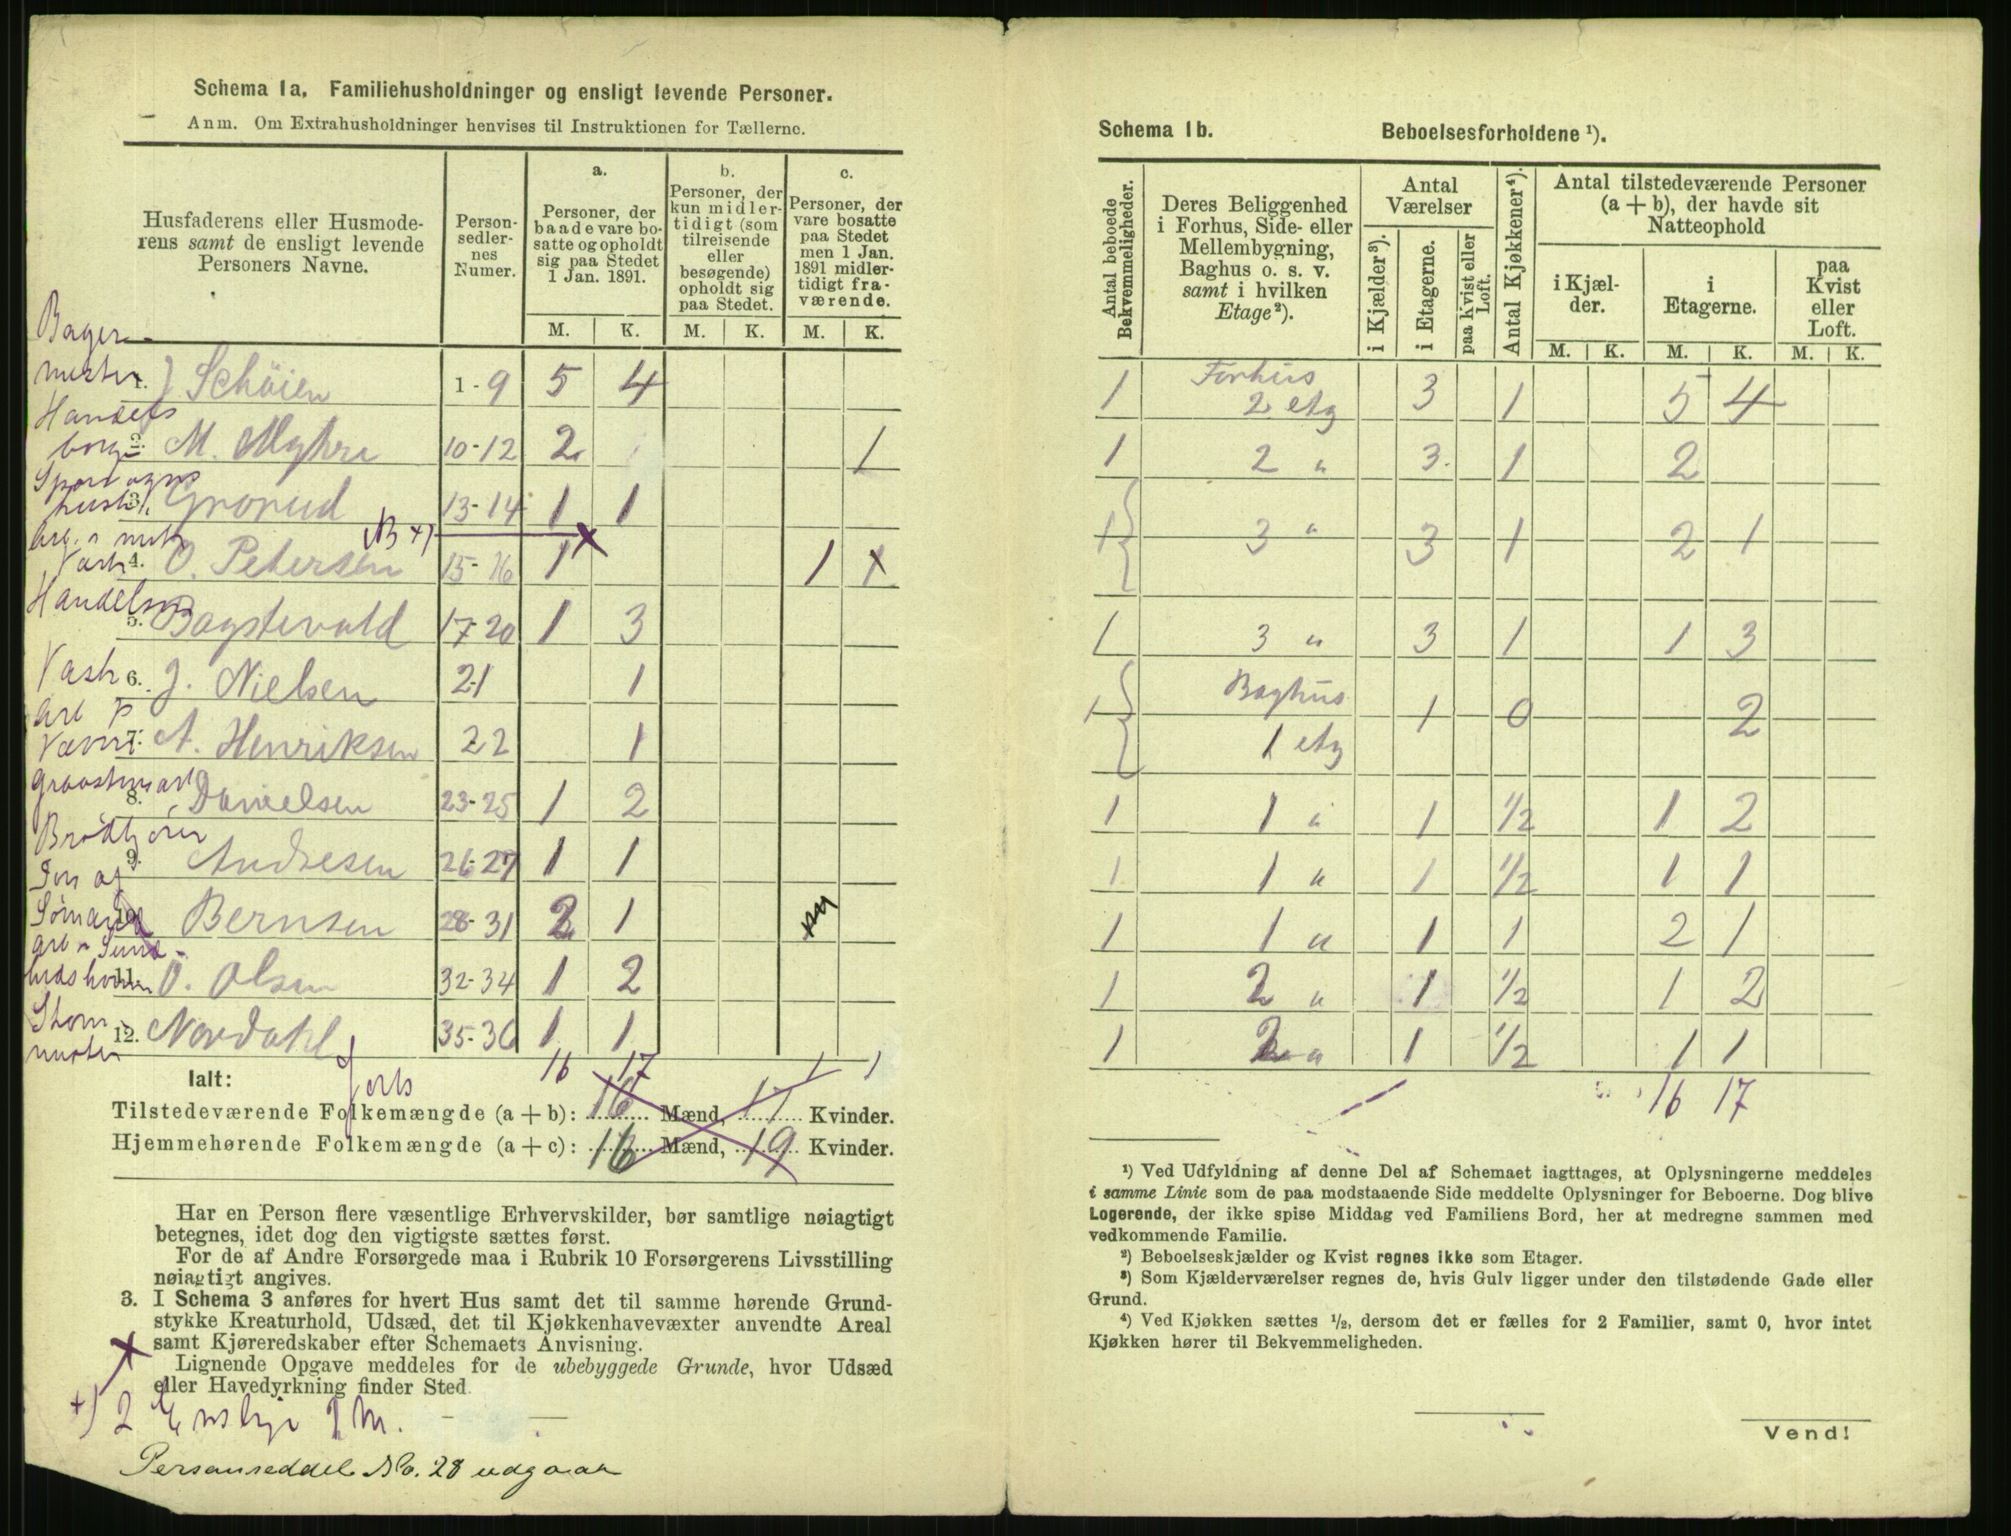 Schema 1a. Familiehusholdninger og ensligt levende Personer.
Anm. Om Extrahusholdninger henvises til Instruktionen for Tællerne.
Husfaderens eller Husmode-
rens samt de ensligt levende
Personers Navne.
Person-
sedler-
nes
Numer.
a.
Personer, der
baade vare bo-
satte og opholdt
sig paa Stedet
1 Jan. 1891.
b.
Personer, der
kun midler-
tidigt (som
tilreisende
eller
besøgende)
opholdt sig
paa Stedet.
c.
Personer, der
vare bosatte
paa Stedet
men 1 Jan.
1891 midler-
tidigt fra-
værende.
M. K. M. K. M. K.
Bager-
mester 1. J Schöien 1-9 5 4
Handels
borg 2. M. Myhre 10-12 2 1
3. Grorud 13-14 1 1
4. O. Petersen 15-16 1 1 1
Handels
5. Bagstevold 17-20 1 3
Vask 6. J. Nielsen 21 1
7. A. Henriksen 22 1
8. Danielsen 23-25 1 2
Brödkjörer
9. Andresen 26-27 1 1
Sömand 10. Bernsen 28-31 2 1
11. O. Olsen 32-34 1 2
12. Nordahl 35-36 1 1
Ialt: 16 17 1 1
Tilstedeværende Folkemængde (a + b): 16 Mænd, 17 Kvinder.
Hjemmehørende Folkemængde (a + c): 16 Mænd, 19 Kvinder.
Har en Person flere væsentlige Erhvervskilder, bør samtlige nøiagtigt
betegnes, idet dog den vigtigste sættes først.
For de af Andre Forsørgede maa i Rubrik 10 Forsørgerens Livsstilling
nøiagtigt angives.
3. I Schema 3 anføres for hvert Hus samt det til samme hørende Grund-
stykke Kreaturhold, Udsæd, det til Kjøkkenhavevæxter anvendte Areal
samt Kjøreredskaber efter Schemaets Anvisning.
Lignende Opgave meddeles for de ubebyggede Grunde, hvor Udsæd
eller Havedyrkning finder Sted.
+) 2 Enslige
Personseddel No. 28 udgaaar
Schema 1b. Beboelsesforholdene ¹).
Antal beboede
Bekvemmeligheder.
Deres Beliggenhed
i Forhus, Side- eller
Mellembygning,
Baghus o. s. v.
samt i hvilken
Etage²).
Antal
Værelser
i Kjælder³).
i Etagerne.
paa Kvist eller
Loft.
Antal Kjøkkener⁴).
Antal tilstedeværende Personer
(a + b), der havde sit
Natteophold
i Kjæl-
der.
i
Etagerne.
paa
Kvist
eller
Loft.
M. K. M. K. M. K.
1 Forhus
2 etg 3 1 5 4
1 2 " 3. 1 2
1 3 " 3 1 2 1
1 3 " 3 1 1 3
1 Baghus
1 etg 1 0 2
1 1 " 1 1/2 1 2
1 1 " 1 1/2 1 1
1 1 " 1 1 2 1
1 2 " 1 1/2 1 2
1 2 " 1 1/2 1 1
16 17
¹) Ved Udfyldning af denne Del af Schemaet iagttages, at Oplysningerne meddeles
i samme Linie som de paa modstaaende Side meddelte Oplysninger for Beboerne. Dog blive
Logerende, der ikke spise Middag ved Familiens Bord, her at medregne sammen med
vedkommende Familie.
²) Beboelseskjælder og Kvist regnes ikke som Etager.
³) Som Kjælderværelser regnes de, hvis Gulv ligger under den tilstødende Gade eller
Grund.
⁴) Ved Kjøkken sættes ½, dersom det er fælles for 2 Familier, samt 0, hvor intet
Kjøkken hører til Bekvemmeligheden.
Vend!